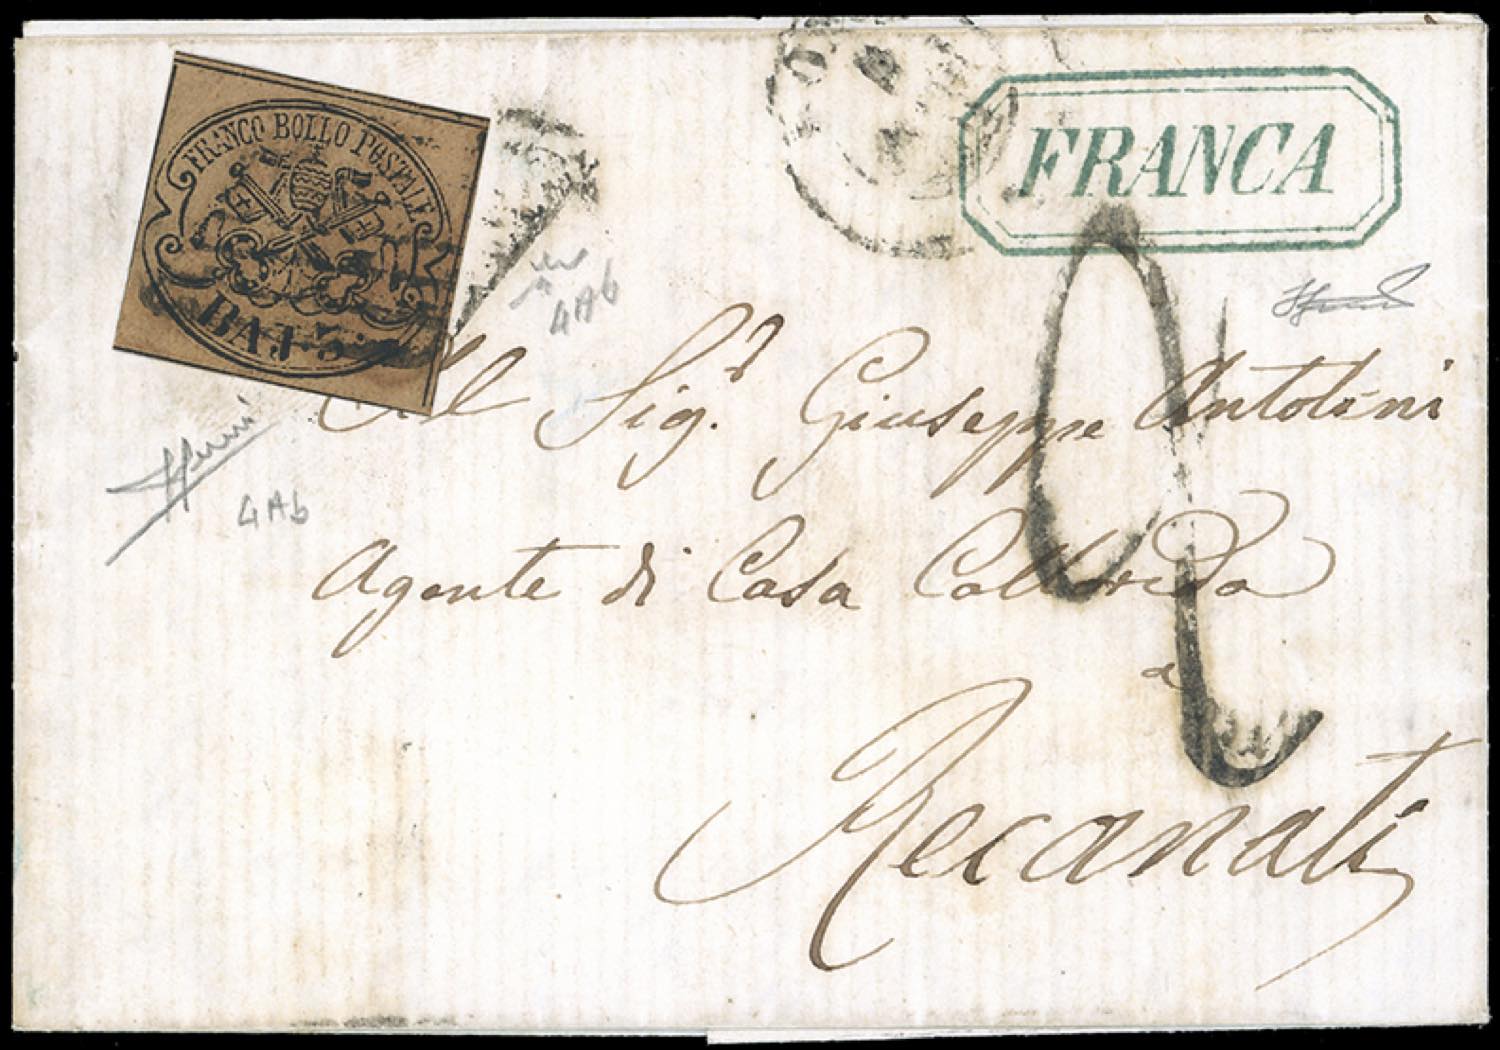 FRANCO BOLLO POSTALE
BAJ 3
FRANCA
4Ab
4Ab
Al Sig.r Giuseppe Antolini
Agente di Casa Colloredo
a
Recanati